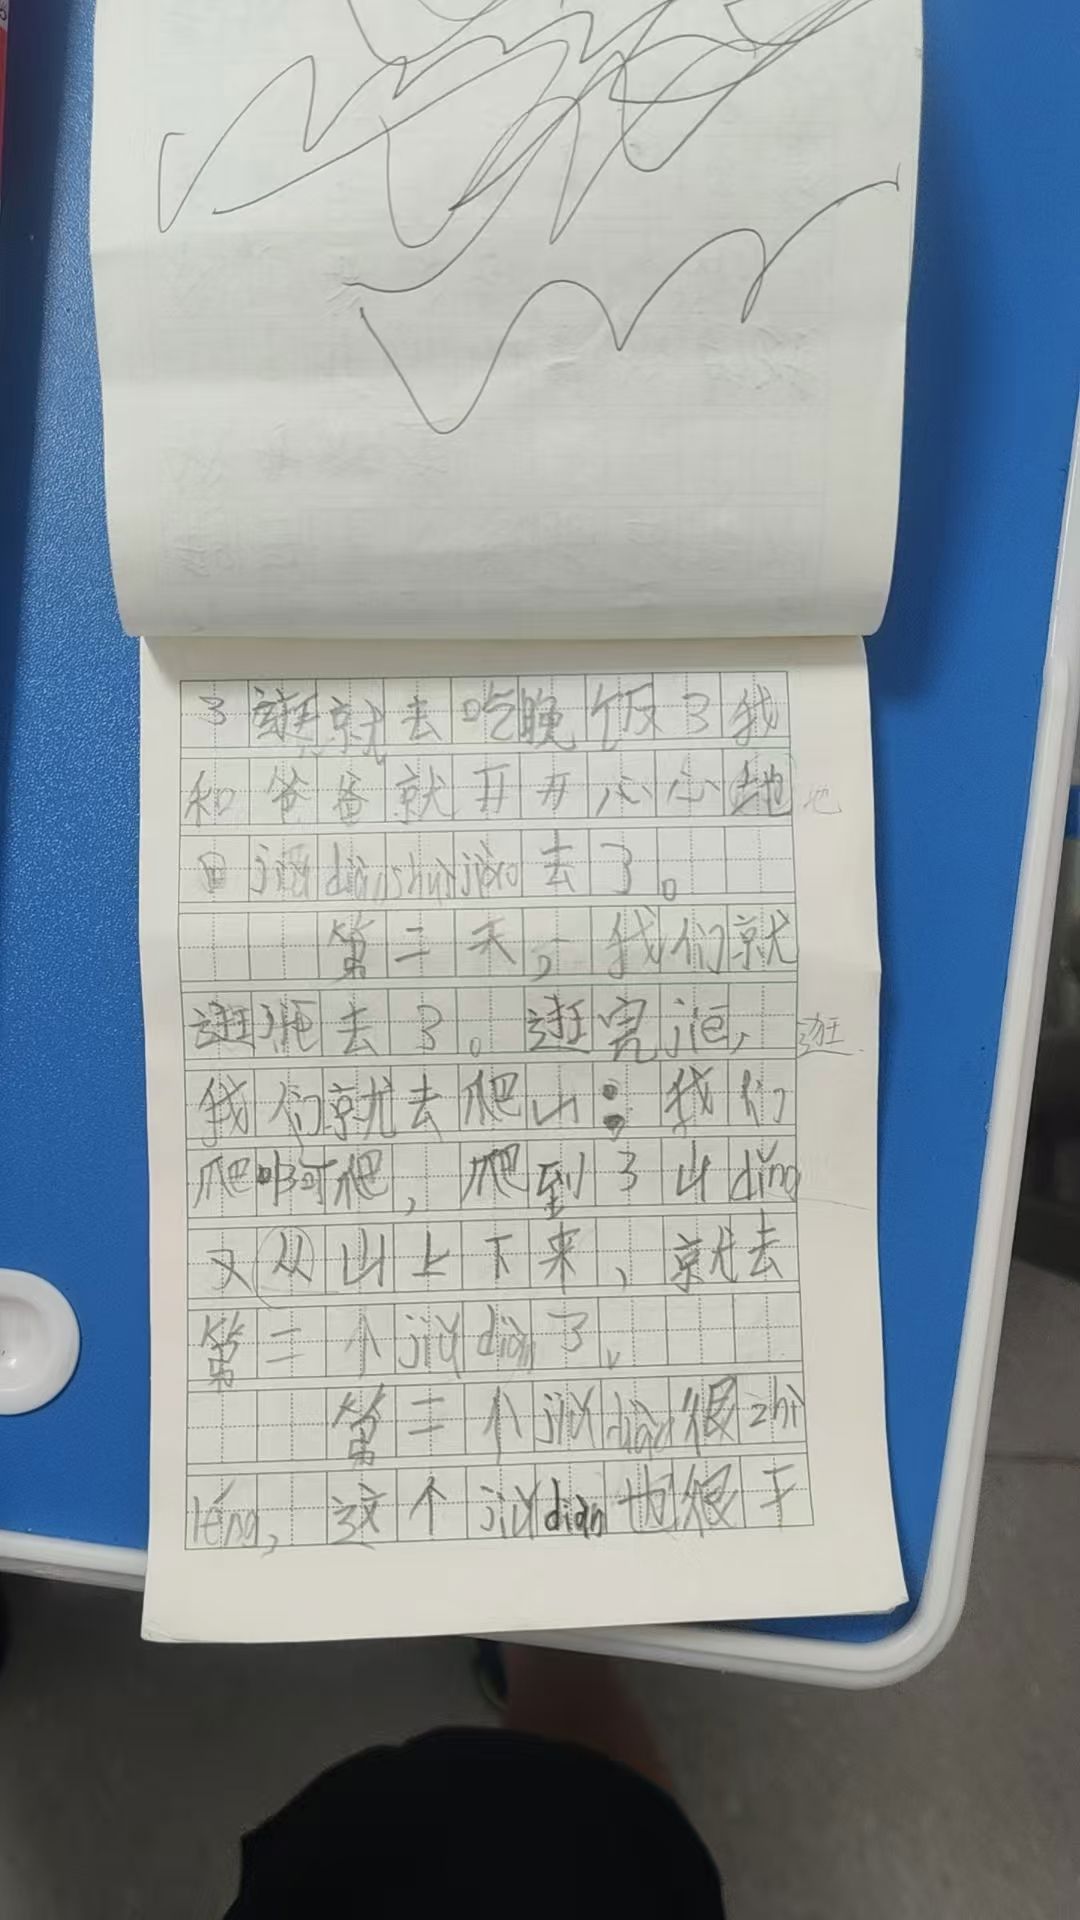 了逛就去吃晚饭了我
和爸爸就开开心心地 地
回jiǔ diàn shuì jiào去了。
第二天，我们就
逛jiē去了。逛完jiē， 逛
我们就去爬山：我们
爬啊爬，爬到了山dǐng
又从山上下来，就去
第二个jiǔ diàn了、
第二个jiǔ diàn很zhì
lěng，这个jiǔ dian也很干